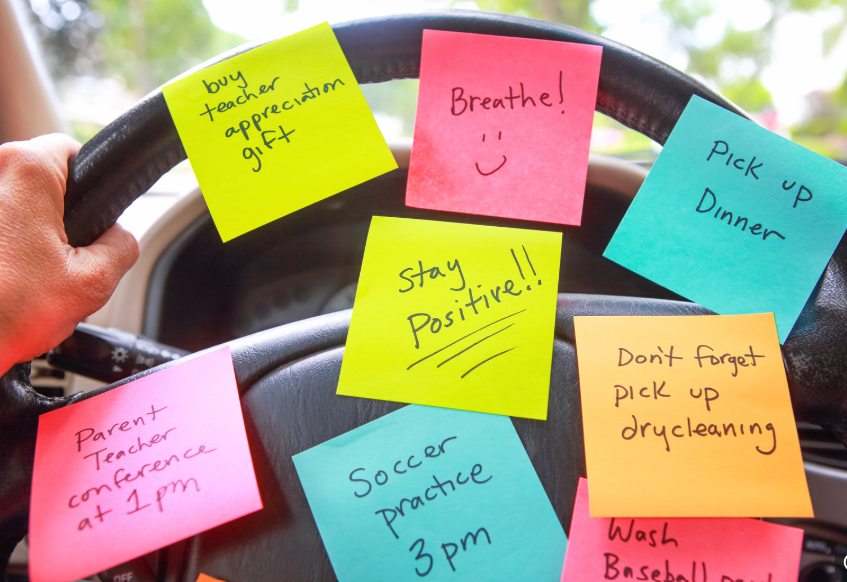 buy
teacher
appreciation
gift
Breathe!
Pick up
Dinner
Stay
Positive!!
Don't forget
pick up
drycleaning
Parent
Teacher
conference
at 1pm
Soccer
practice
3pm
Wash
Baseball
OFF